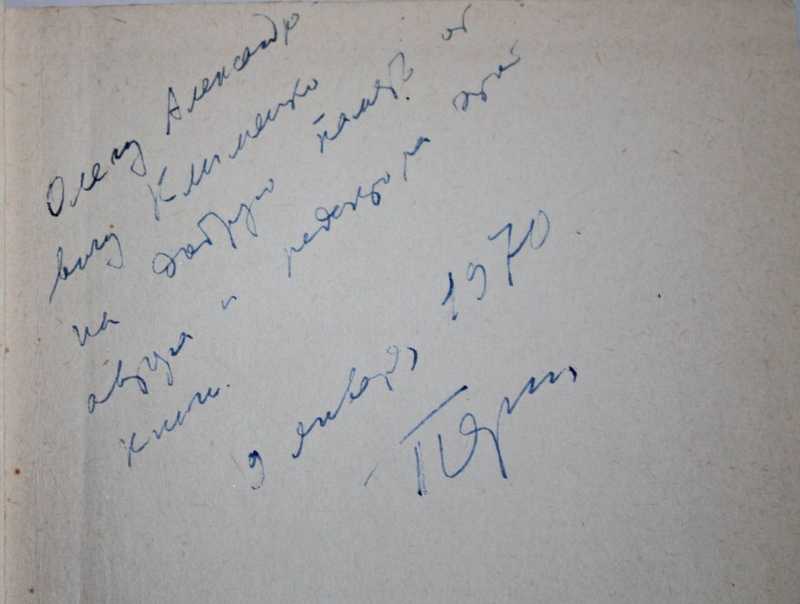 Олегу Александро
вичу Клименко
на добрую память от
автора и редактора этой
книги.
9 января 1970